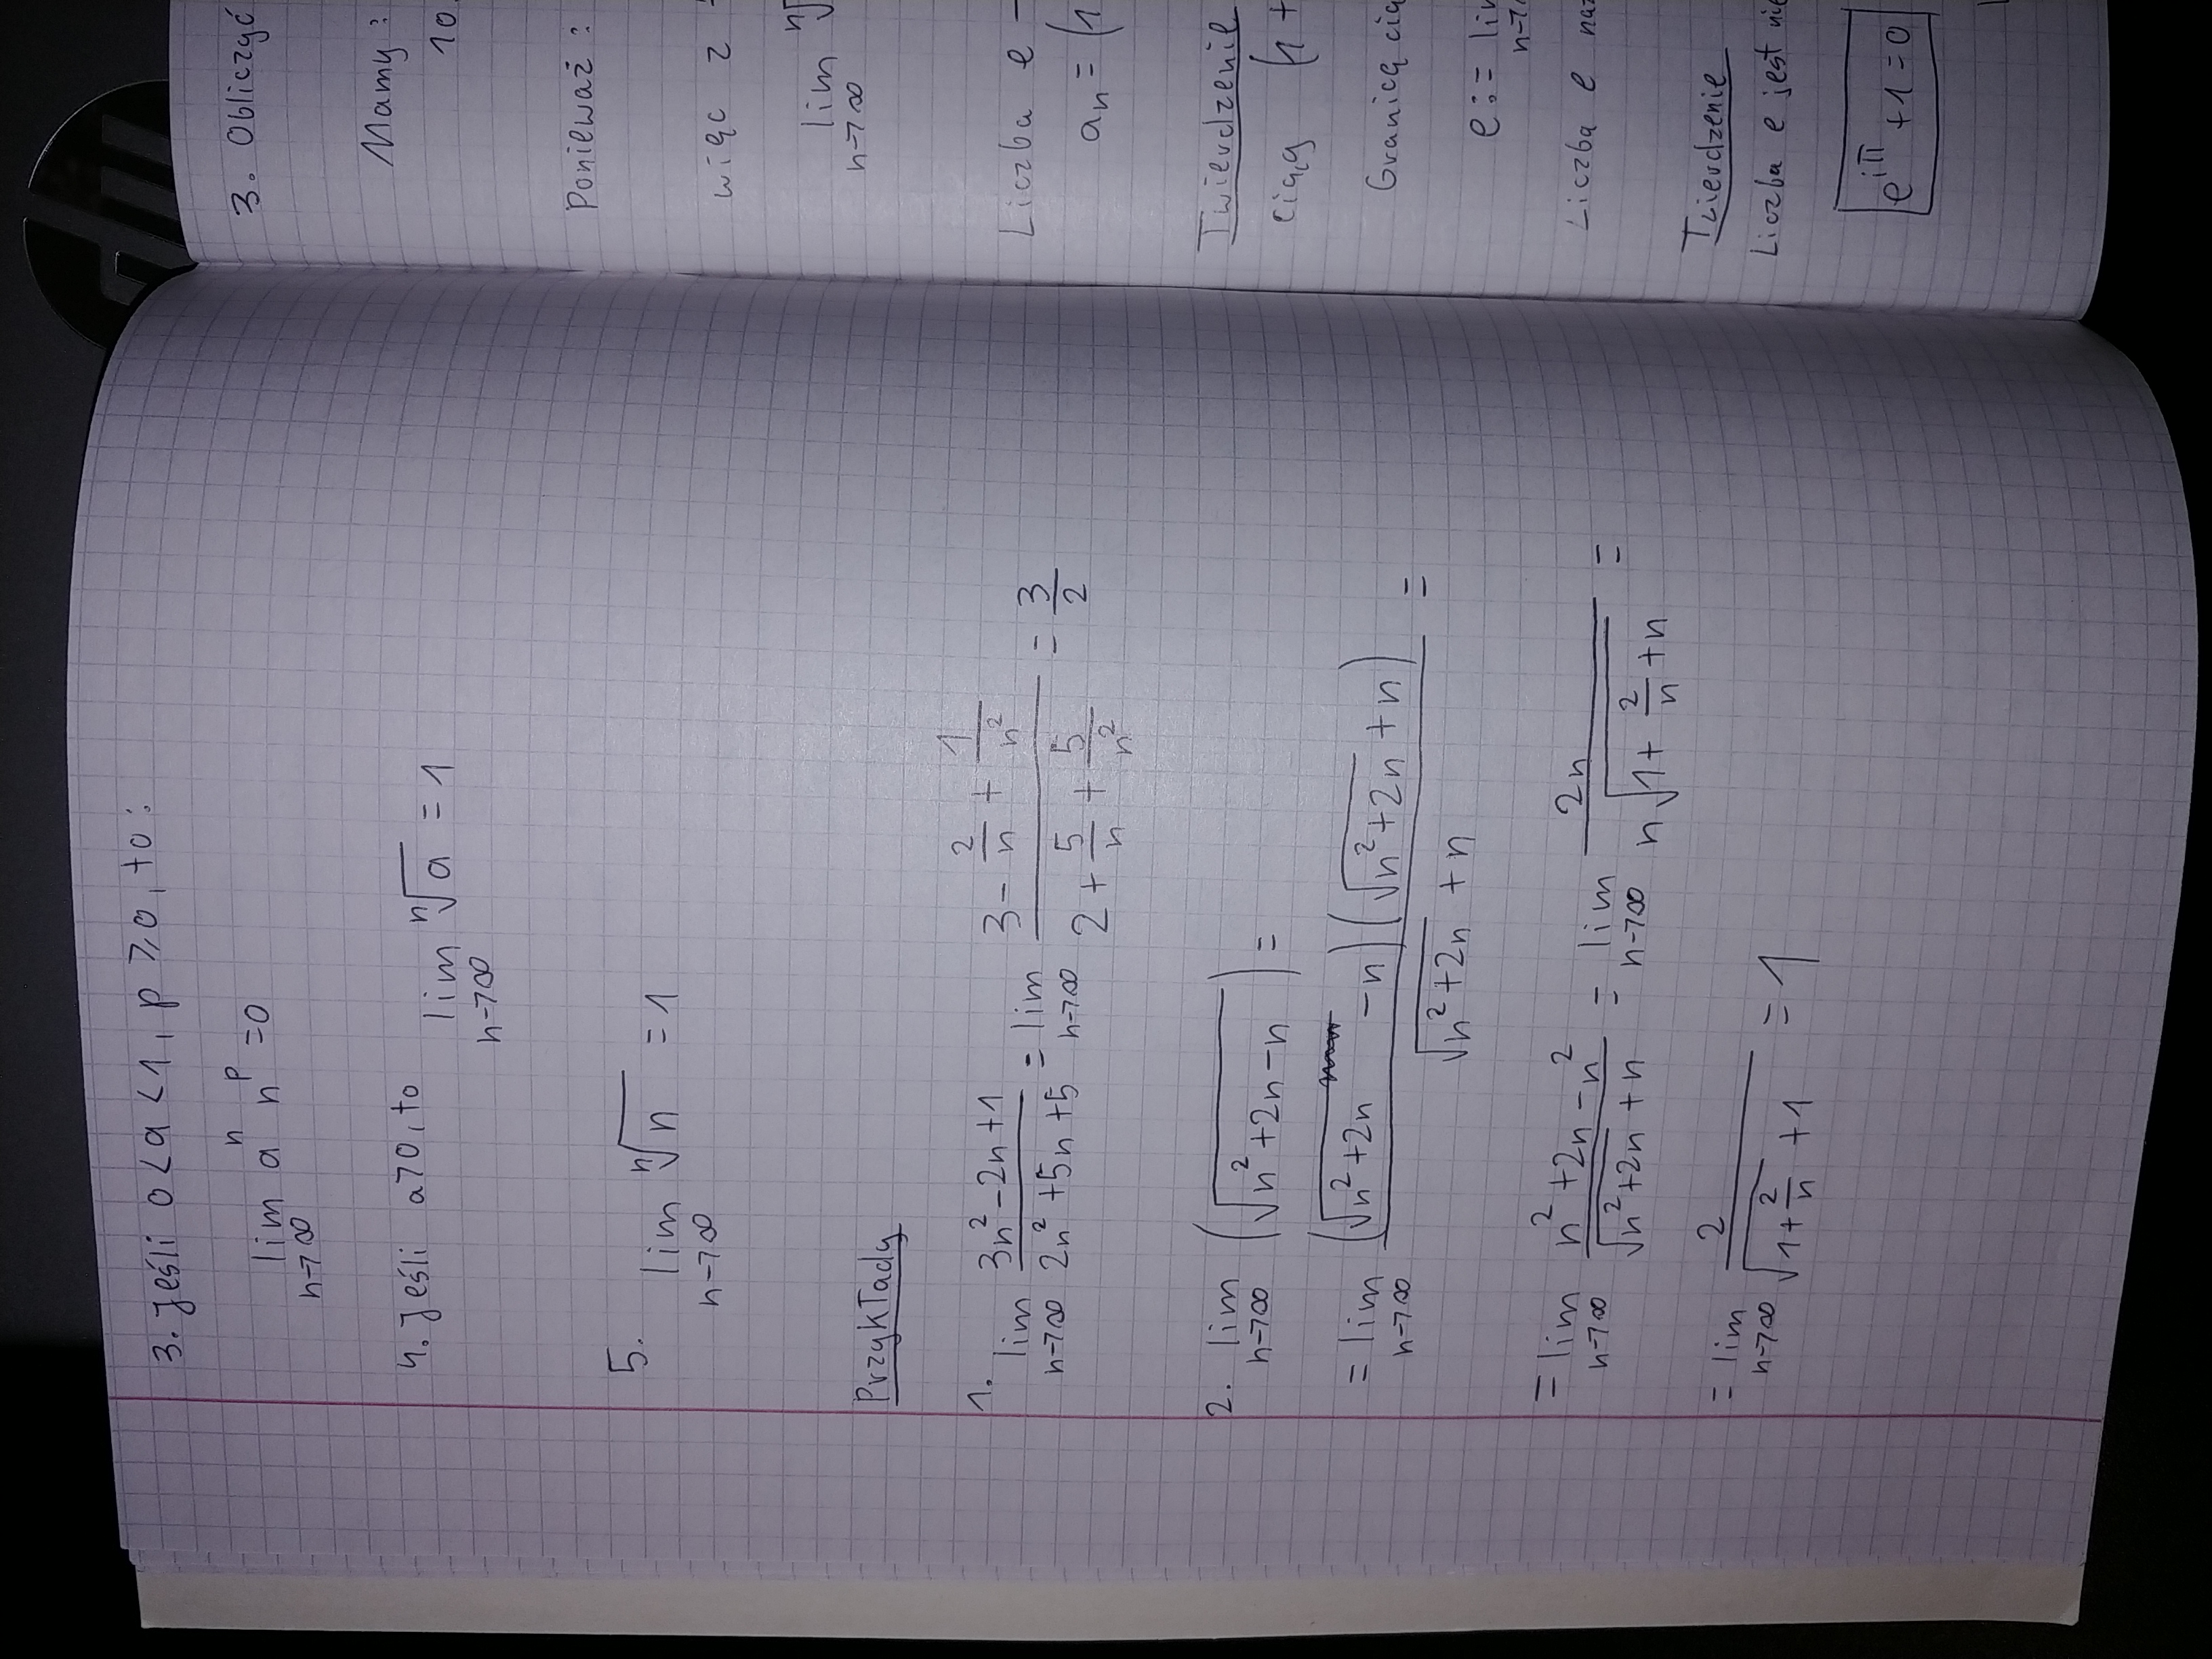 3. Jeśli 0<a<1, p ≥0, to:
lim a^n n^p =0
n→∞
4. Jeśli a>0, to lim ⁿ√a = 1
n→∞
5. lim ⁿ√n = 1
n→∞
Przykłady
1. lim_{n→∞} (3n²-2n+1)/(2n²+5n+5) = lim_{n→∞} (3 - 2/n + 1/n²)/(2 + 5/n + 5/n²) = 3/2
2. lim_{n→∞} (√(n²+2n-n)) =
= lim_{n→∞} ((√(n²+2n) -n)(√(n²+2n) +n))/(√(n²+2n) + n) =
= lim_{n→∞} (n²+2n-n²)/(√(n²+2n) + n) = lim_{n→∞} 2n/(n√(1+ 2/n +n)) =
= lim_{n→∞} 2/(√(1+2/n) +1) = 1
3. Obliczyć
Mamy:
10
Ponieważ:
więc z
lim ⁿ√
n→∞
Liczba e -
aₙ = (1
Twierdzenie
ciąg (1+
Granicę cią
e:= lim
n→
Liczba e naz
Twierdzenie
Liczba e jest nie
e^{iπ} +1=0